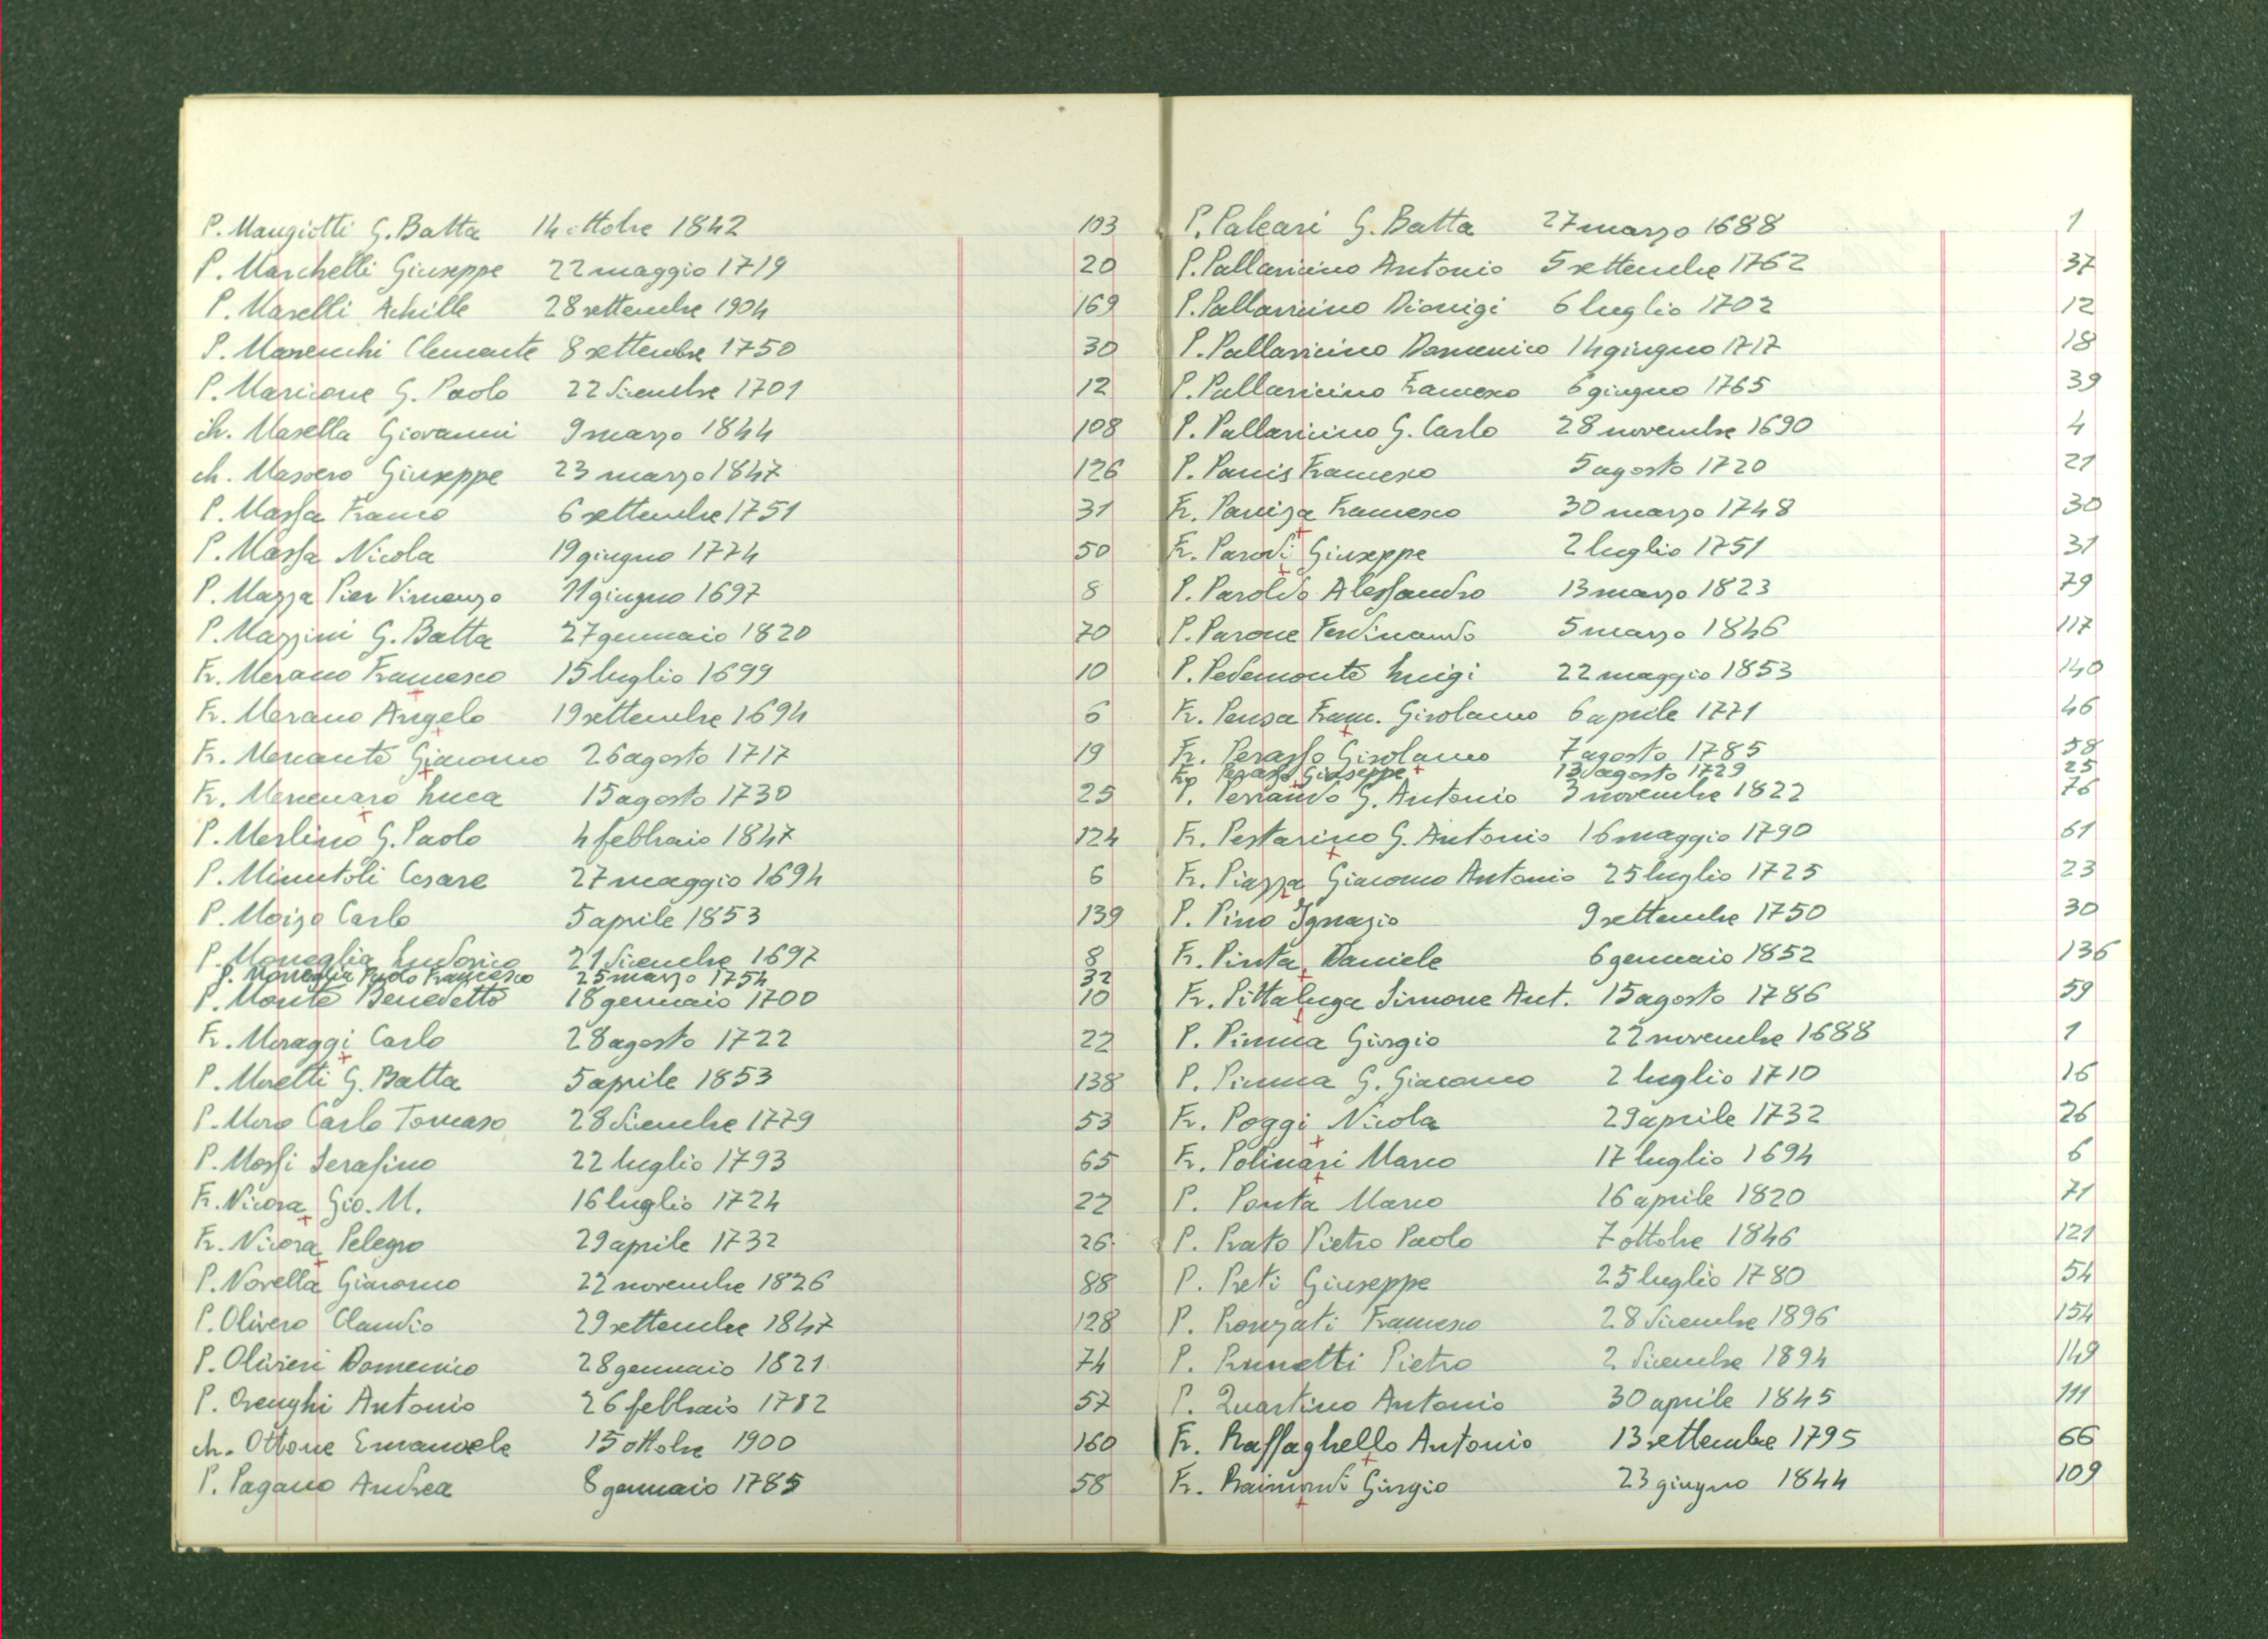 P. Mangiotti G. Batta 14 ottobre 1842 103
P. Marchelli Giuseppe 22 maggio 1719 20
P. Marelli Achille 28 settembre 1904 169
P. Marenchi Clemente 8 settembre 1750 30
P. Maricone G. Paolo 22 dicembre 1701 12
ch. Masella Giovanni 9 marzo 1844 108
ch. Massero Giuseppe 23 marzo 1847 126
P. Massa Franco 6 settembre 1751 31
P. Massa Nicola 19 giugno 1774 50
P. Mazza Pier Vincenzo 11 giugno 1697 8
P. Mazzini G. Batta 27 gennaio 1820 70
Fr. Merano Francesco 15 luglio 1699 10
Fr. Merano Angelo 19 settembre 1694 6
Fr. Mercante Giacomo 26 agosto 1717 19
Fr. Mercenaro Luca 15 agosto 1730 25
P. Merlino G. Paolo 4 febbraio 1847 124
P. Minutoli Cesare 27 maggio 1694 6
P. Moizo Carlo 5 aprile 1853 139
P. Moneglia Ludovico 21 dicembre 1697 8
P. Moneglia Paolo Francesco 25 marzo 1754 32
P. Monte Benedetto 18 gennaio 1700 10
Fr. Moraggi Carlo 28 agosto 1722 22
P. Moretti G. Batta 5 aprile 1853 138
P. Moro Carlo Tomaso 28 dicembre 1779 53
P. Mossi Serafino 22 luglio 1793 65
Fr. Nicora Gio. M. 16 luglio 1724 22
Fr. Nicora Pelegro 29 aprile 1732 26
P. Novella Giacomo 22 novembre 1826 88
P. Olivero Claudio 29 settembre 1847 128
P. Olivieri Domenico 28 gennaio 1821 74
P. Orenghi Antonio 26 febbraio 1782 57
ch. Ottone Emanuele 15 ottobre 1900 160
P. Pagano Andrea 8 gennaio 1785 58
P. Paleari G. Batta 27 marzo 1688 1
P. Pallavicino Antonio 5 settembre 1762 37
P. Pallavicino Dionigi 6 luglio 1702 12
P. Pallavicino Domenico 14 giugno 1717 18
P. Pallavicino Francesco 6 giugno 1765 39
P. Pallavicino G. Carlo 28 novembre 1690 4
P. Panis Francesco 5 agosto 1720 21
Fr. Paniza Francesco 30 marzo 1748 30
Fr. Parodi Giuseppe 2 luglio 1751 31
P. Paroldo Alessandro 13 marzo 1823 79
P. Parone Ferdinando 5 marzo 1846 117
P. Pedemonte Luigi 22 maggio 1853 140
Fr. Pensa Franc. Girolamo 6 aprile 1771 46
Fr. Perasso Girolamo 7 agosto 1785 58
Fr. Perasso Giuseppe 13 agosto 1729 25
P. Perrando G. Antonio 3 novembre 1822 76
Fr. Pestarino G. Antonio 16 maggio 1790 61
Fr. Piazza Giacomo Antonio 25 luglio 1725 23
P. Pino Ignazio 9 settembre 1750 30
Fr. Pinta Daniele 6 gennaio 1852 136
Fr. Pittaluga Simone Ant. 15 agosto 1786 59
P. Piuma Giorgio 22 novembre 1688 1
P. Piuma G. Giacomo 2 luglio 1710 16
Fr. Poggi Nicola 29 aprile 1732 26
Fr. Polinari Marco 17 luglio 1694 6
P. Ponta Marco 16 aprile 1820 71
P. Prato Pietro Paolo 7 ottobre 1846 121
P. Preti Giuseppe 25 luglio 1780 54
P. Ronzati Francesco 28 dicembre 1896 154
P. Prunetti Pietro 2 dicembre 1894 149
P. Quartino Antonio 30 aprile 1845 111
Fr. Raffaghello Antonio 13 settembre 1795 66
Fr. Raimondi Giorgio 23 giugno 1844 109